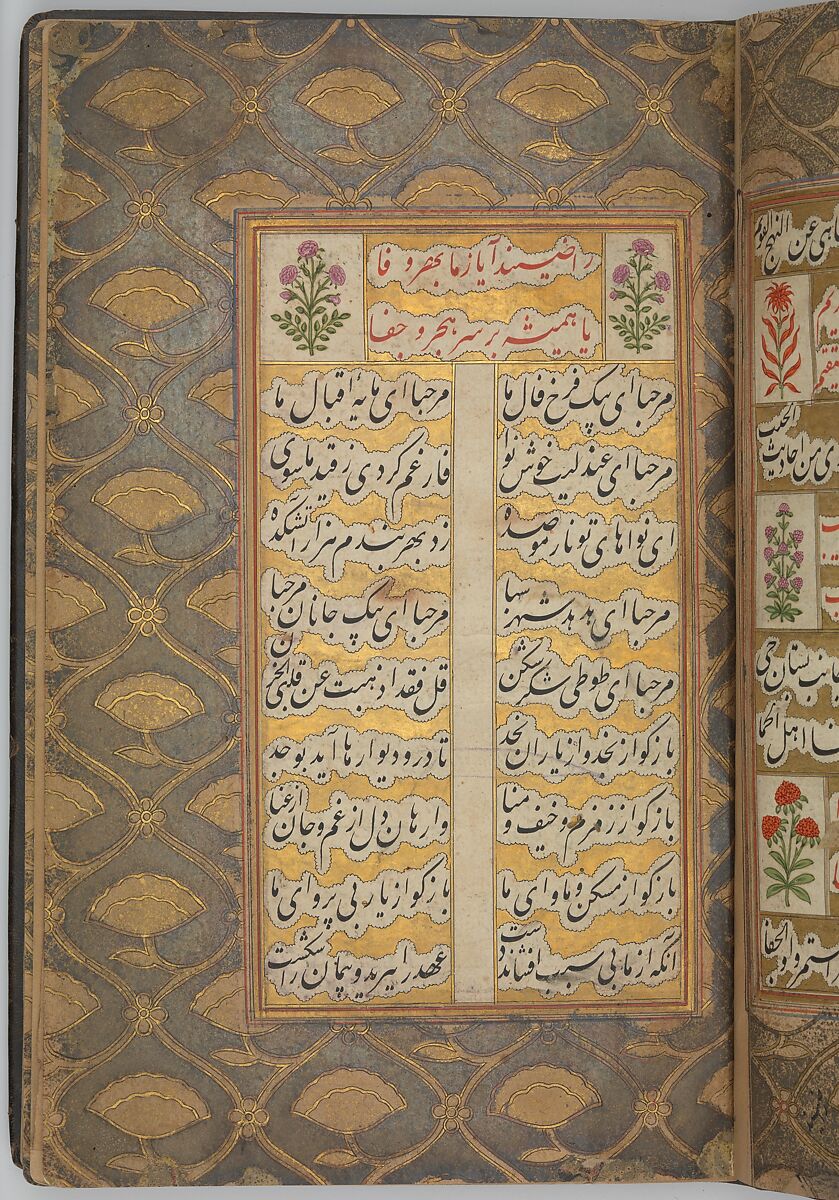 راضیند آیا ز ما بهر وفا
یا همیشه بر سر هجر و جفا
مرحبا ای پیک فرخ فال ما
مرحبا ای مایه اقبال ما
مرحبا ای عندلیب خوش نوا
فارغم کردی ز قید ماسوی
ای نواهای تو نار موصده
زد بهر بندم هزار آتشکده
مرحبا ای هدهد شهر سبا
مرحبا ای پیک جانان مرحبا
مرحبا ای طوطی شکر شکن
قل فقد اذهبت عن قلبی الحزن
بازکو از نجد و از یاران نجد
تا در و دیوارها آید بوجد
بازکو از زمزم و خیف و منا
وارهان دل از غم و جان از عنا
بازکو از مسکن و ماوای ما
بازکو از یار بی پروای ما
آنکه از ما بی سبب افشاند دست
عهد را ببرید و پیمان را شکست